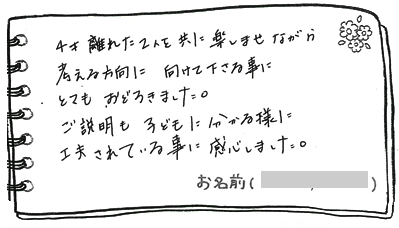 4才離れた2人を共に楽しませながら
考える方向に向けて下さる事に
とてもおどろきました。
ご説明も子どもに分かる様に
工夫されている事に感心しました。
お名前(　　　　　)